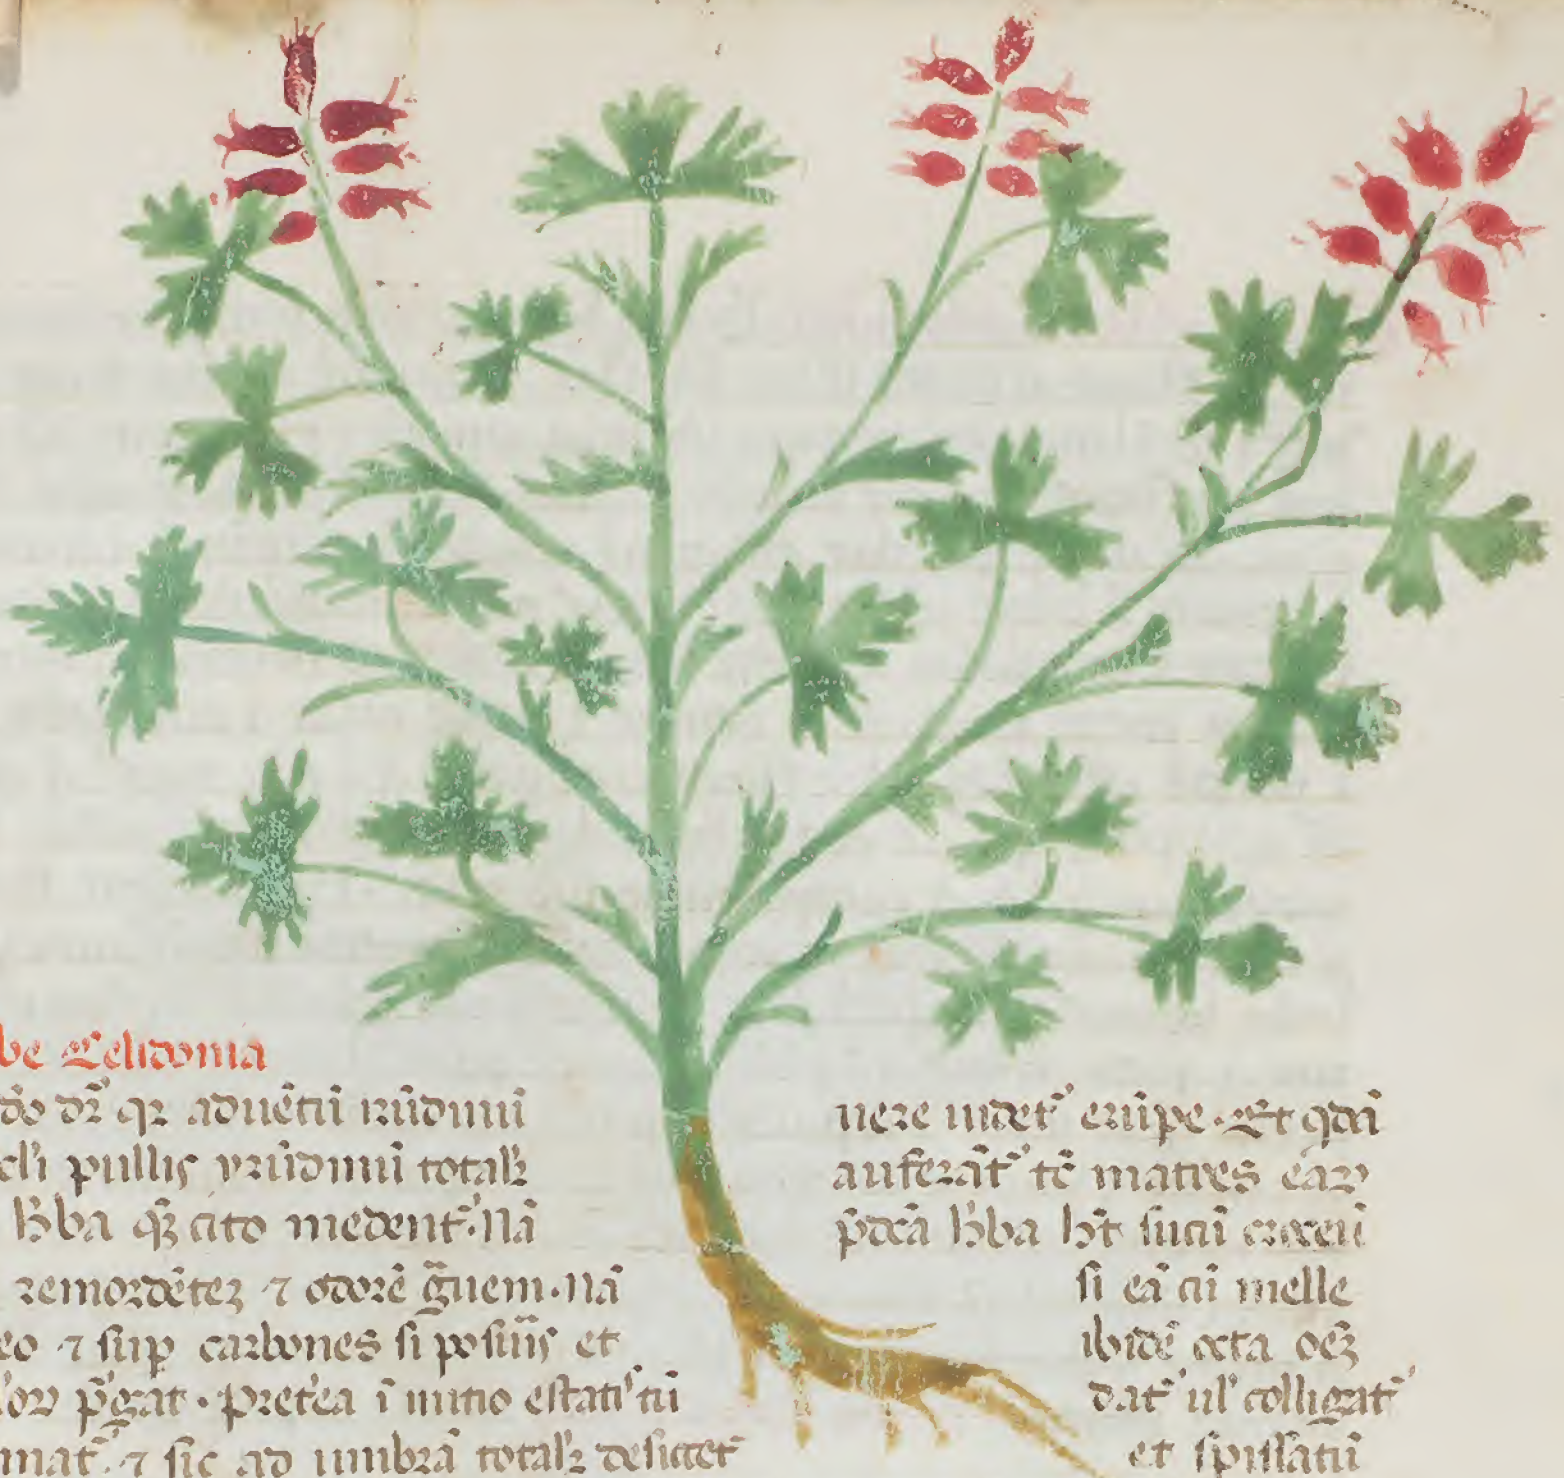 be Celidonia
do dr̄ qꝛ aduētū irūdinū
cl'i pullis yrūdinū total'r
h'ba qꝫ cito medent᷑. Nā
remordētez ⁊ odorē g̃uem. Nā
eo ⁊ sup carbones si posūīs et
p᷑gat. Pret'ea ī initio estati' tū
mat᷑. ⁊ sic ad umbrā total'r desiccet᷑
uere uidet᷑ erūpe. Et qdā
auferāt᷑ tc̄ matres eaꝝ
p̄dc̄a h'ba ht̄ sucū croceū
si eā cū melle
ibidē octa oēꝫ
dat᷑ ul' colligat᷑
et spissatū